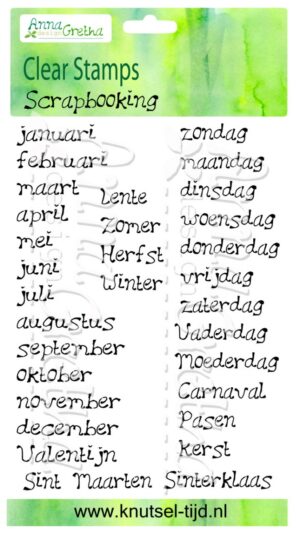 Anna
design
Gretha
Clear Stamps
Scrapbooking
januari
februari
maart
april
mei
juni
juli
augustus
september
oktober
november
december
Valentijn
Lente
Zomer
Herfst
Winter
zondag
maandag
dinsdag
woensdag
donderdag
vrijdag
zaterdag
Vaderdag
Moederdag
Carnaval
Pasen
kerst
Sint Maarten Sinterklaas
www.knutsel-tijd.nl